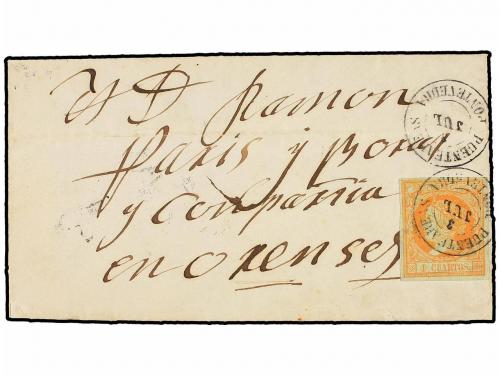 A D Ramon
Paris y Boral
y Compañia
en orenses
PUENTEAREAS PONTEVEDRA
JUL
PUENTEAREAS PONTEVEDRA
3
JUL
4 CUARTOS